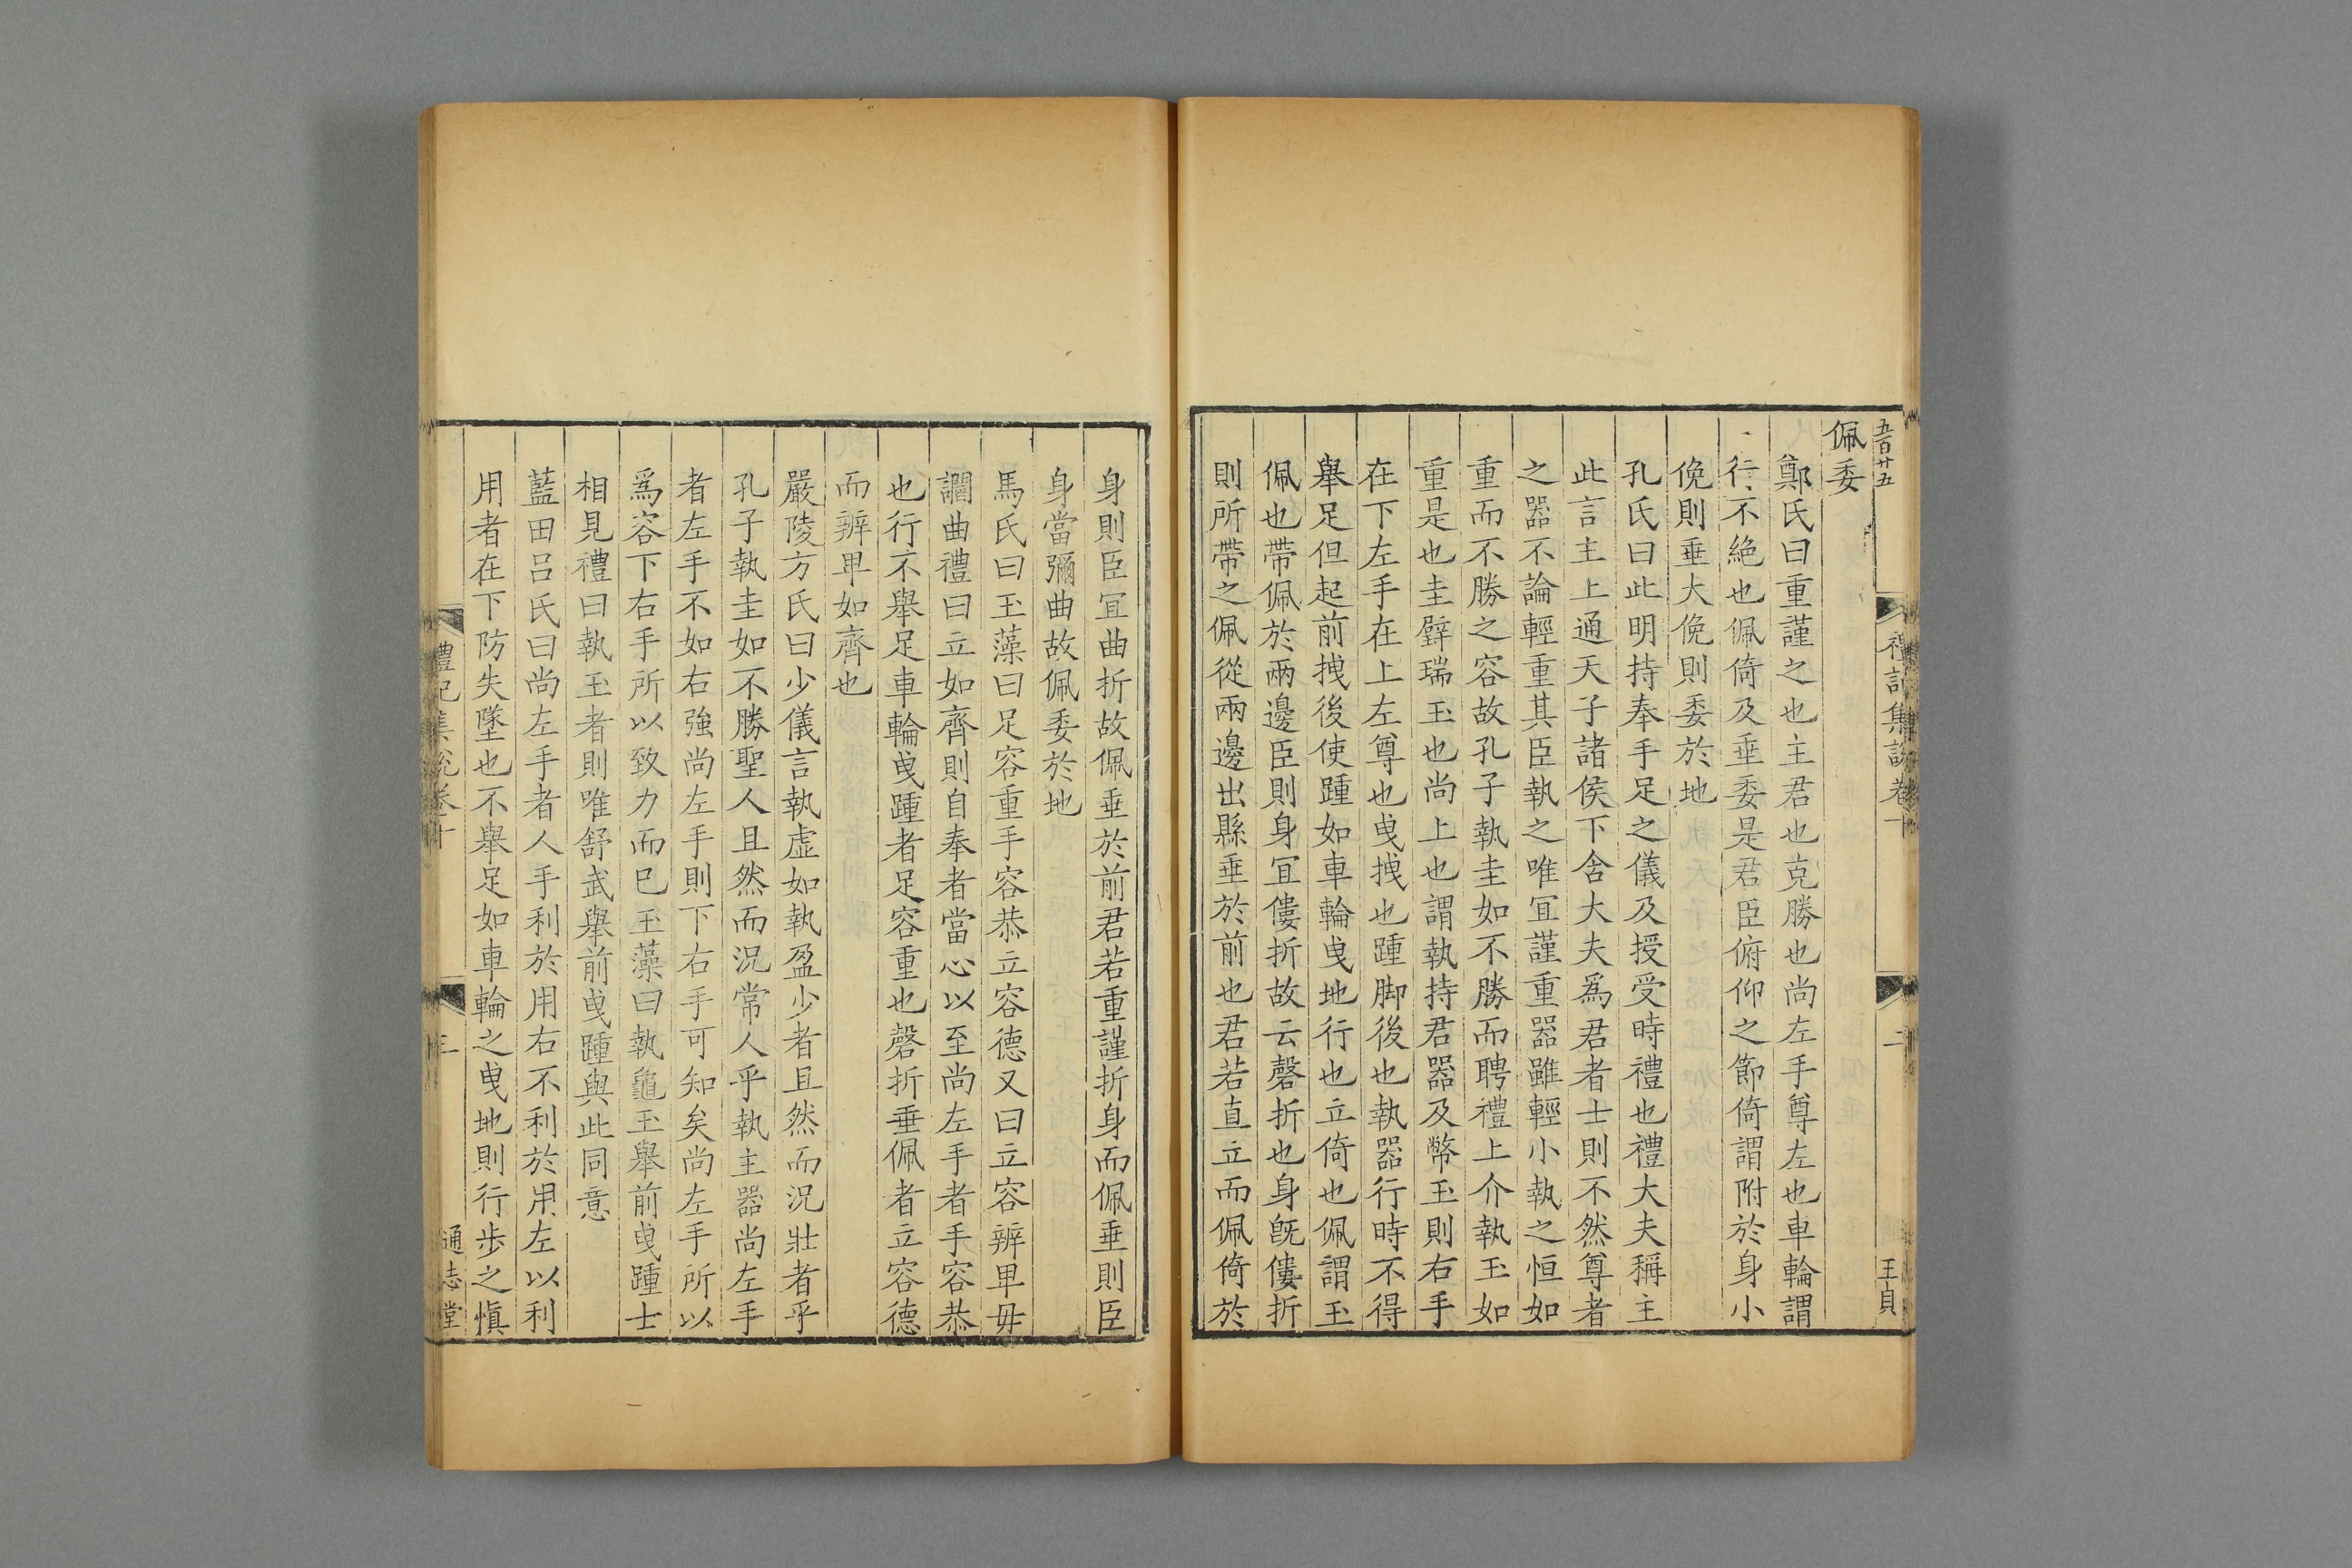 五百廿五
禮記集說卷十
二
王貞
佩委
鄭氏曰重謹之也主君也克勝也尚左手尊左也車輪謂
行不絶也佩倚及垂委是君臣俯仰之節倚謂附於身小
俛則垂大俛則委於地
孔氏曰此明持奉手足之儀及授受時禮也禮大夫稱主
此言主上通天子諸侯下含大夫爲君者士則不然尊者
之器不論輕重其臣執之唯冝謹重器雖輕小執之恒如
重而不勝之容故孔子執圭如不勝而聘禮上介執玉如
重是也圭璧瑞玉也尚上也謂執持君器及幣玉則右手
在下左手在上左尊也曵拽也踵脚後也執器行時不得
舉足但起前拽後使踵如車輪曵地行也立倚也佩謂玉
佩也帶佩於兩邊臣則身冝僂折故云磬折也身旣僂折
則所帶之佩從兩邊出縣垂於前也君若直立而佩倚於
身則臣冝曲折故佩垂於前君若重謹折身而佩垂則臣
身當彌曲故佩委於地
馬氏曰玉藻曰足容重手容恭立容德又曰立容辨卑毋
讇曲禮曰立如齊則自奉者當心以至尚左手者手容恭
也行不舉足車輪曵踵者足容重也磬折垂佩者立容德
而辨卑如齊也
嚴陵方氏曰少儀言執虛如執盈少者且然而況壯者乎
孔子執圭如不勝聖人且然而況常人乎執主器尚左手
者左手不如右強尚左手則下右手可知矣尚左手所以
爲容下右手所以致力而巳玉藻曰執龜玉舉前曵踵士
相見禮曰執玉者則唯舒武舉前曵踵與此同意
藍田呂氏曰尚左手者人手利於用右不利於用左以利
用者在下防失墜也不舉足如車輪之曵地則行步之愼
禮記集說卷十
三
通志堂